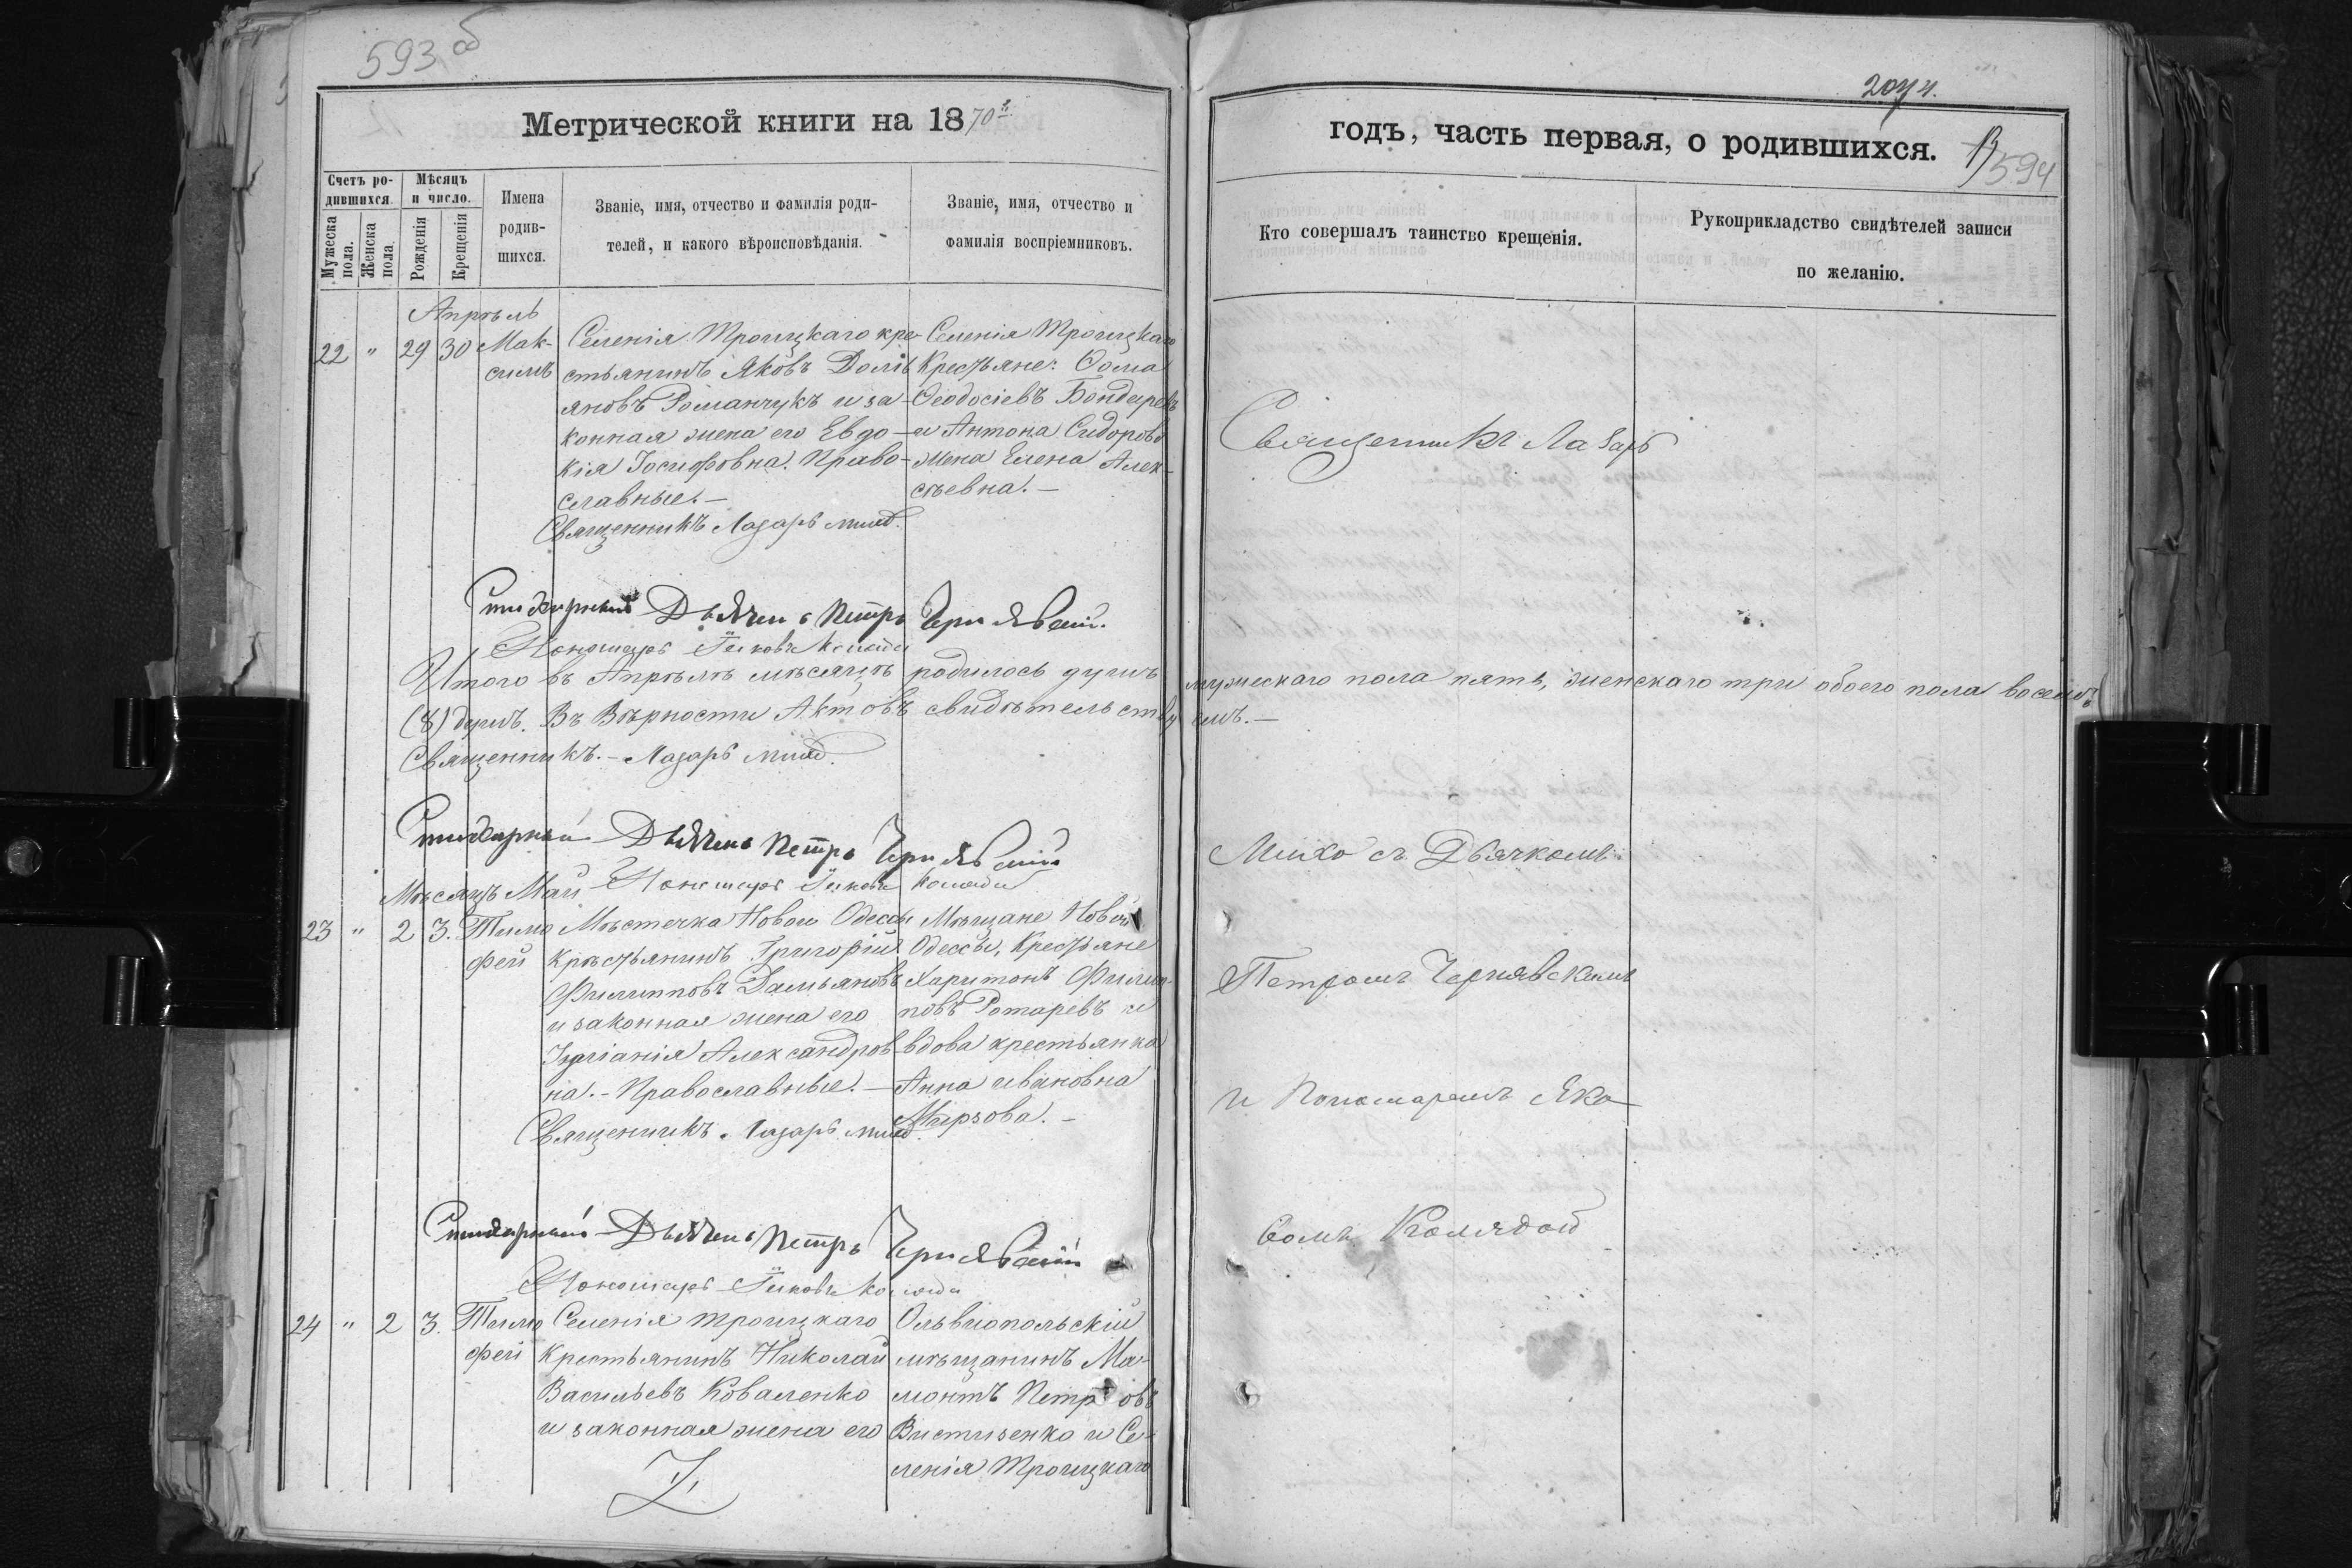 593 об
Метрической книги на 1870й
Счетъ ро-
дившихся.
Мужеска пола.
Женска пола.
Мѣсяцъ
и число.
Рожденія
Крещенія
Имена
родив-
шихся.
Званіе, имя, отчество и фамилія роди-
телей, и какого вѣроисповѣданія.
Званіе, имя, отчество и
фамилія воспріемниковъ.
Апрѣль
22 " 29 30
Мак-
симъ
Селенія Троицкаго кре-
стьянинъ Яковъ Доміь
яновъ Романчукъ и за-
конная жена его Евдо-
кія Іосифовна. Право-
славные.-
Селенія Троицкаго
Крестьяне: Ѳома
Ѳеодосіевъ Бондаревъ
и Антона Сидорова
жена Елена Алек-
сѣевна.-
Священникъ Лазарь
Стихарный Дьячекъ Петръ Чернявскій.
Пономарь Яковъ Коляда
Итого въ Апрѣлѣ мѣсяцѣ родилось душъ
(8) душъ. Въ Вѣрности Актовъ свидѣтельству
Священникъ.- Лазарь
Стихарный Дьячекъ Петръ Чернявскій
Мѣсяцъ Май Пономарь Яковъ Коляда
23 " 2 3.
Тимо
фей
Мѣстечка Новой Одессы
Крестьянинъ Григорій
Филипповъ Дамьяновъ
и законная жена его
Александров-
на.- Православные.-
Мѣщане Новой
Одессы, Крестьяне
Харитонъ Филип-
повъ Ротаревъ и
вдова крестьянка
Анна Ивановна
Мырзова.-
Священникъ Лазарь
Стихарный Дьячекъ Петръ Чернявскій
Пономарь Яковъ Коляда
24 " 2 3.
Тимо
фей
Селенія Троицкаго
Крестьянинъ Николай
Васильевъ Коваленко
и законная жена его
Ольвіопольскій
мѣщанинъ Ма-
монтъ Петровъ
Вистизенко и Се-
ленія Троицкаго
2074.
годъ, часть первая, о родившихся.
13
594
Кто совершалъ таинство крещенія.
Рукоприкладство свидѣтелей записи
по желанію.
Священникъ Лазарь
мужескаго пола пять, женскаго три обоего пола восемь
емъ.-
Михо съ Дьячкомъ
Петромъ Чернявскимъ
и Пономаремъ Яко-
вомъ Колядой